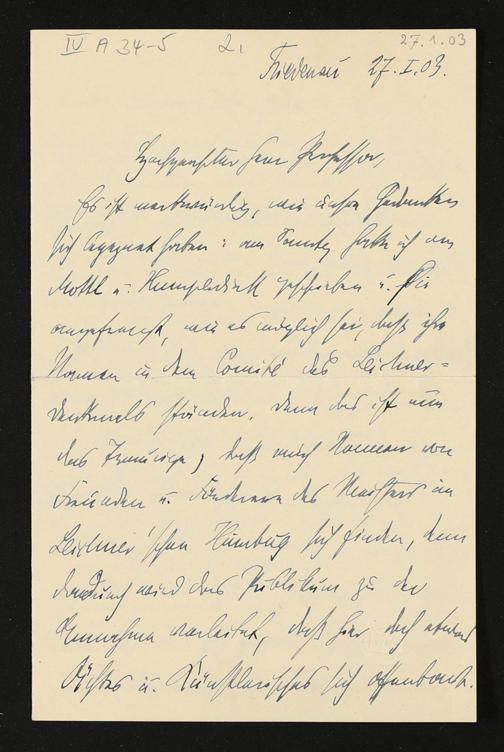 IV A 34-5 2, 27.1.03
Friedenau 27.I.03.
Hochgeehrter Herr Professor,
Es ist merkwürdig, wie unsere Gedanken
sich begegnet haben: am Sonntag hatte ich an
Mottl u. Humperdinck geschrieben u. sie
angefragt, wie es möglich sei, daß ihre
Namen in dem Comité des Leichner=
denkmals stünden. Denn das ist nun
das Traurige, daß auch Namen von
Freunden u. Förderern des Meisters im
Leichner'schen Humbug sich finden, denn
dadurch wird das Publikum zu der
Annahme verleitet, daß hier doch etwas
Ächtes u. Künstlerisches sich offenbart.